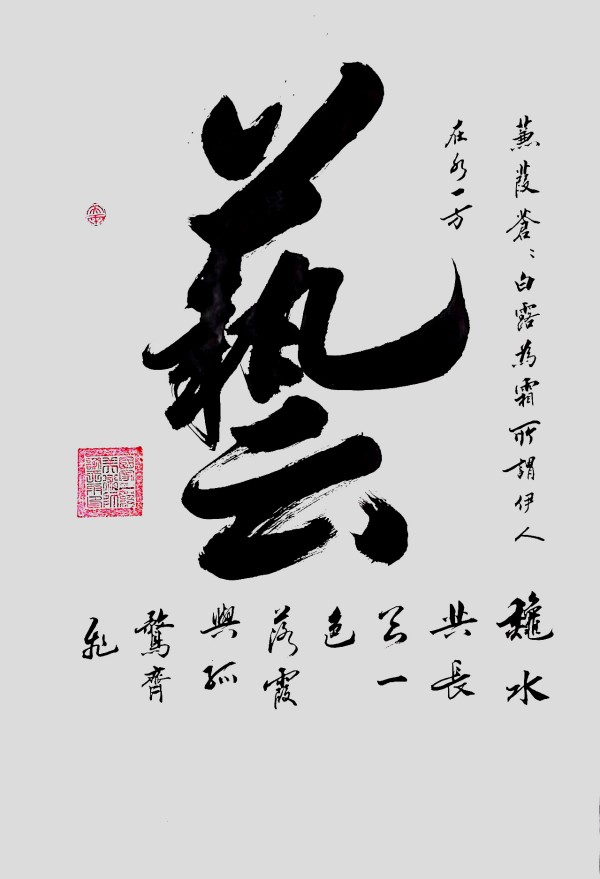 蒹葭蒼〻白露為霜所謂伊人
在水一方
藝
龝水
共長
天一
色
落霞
與孤
鶩齊
飛